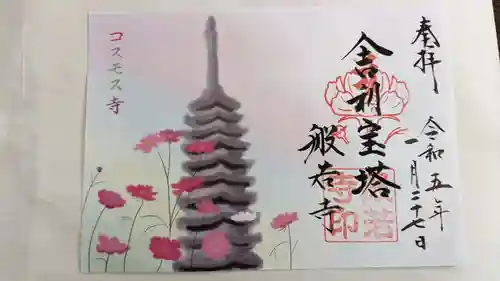 奉拝
令和五年
一月二十七日
舎利宝塔
般若寺
般若
寺印
コスモス寺